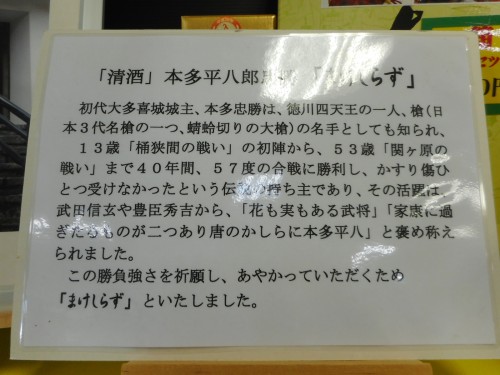 「清酒」本多平八郎忠勝 「まけしらず」
初代大多喜城城主、本多忠勝は、徳川四天王の一人、槍(日
本3代名槍の一つ、蜻蛉切りの大槍)の名手としても知られ、
13歳「桶狭間の戦い」の初陣から、53歳「関ヶ原の
戦い」まで40年間、57度の合戦に勝利し、かすり傷ひ
とつ受けなかったという伝説の持ち主であり、その活躍は、
武田信玄や豊臣秀吉から、「花も実もある武将」「家康に過
ぎたるものが二つあり唐のかしらに本多平八」と褒め称え
られました。
この勝負強さを祈願し、あやかっていただくため
「まけしらず」といたしました。